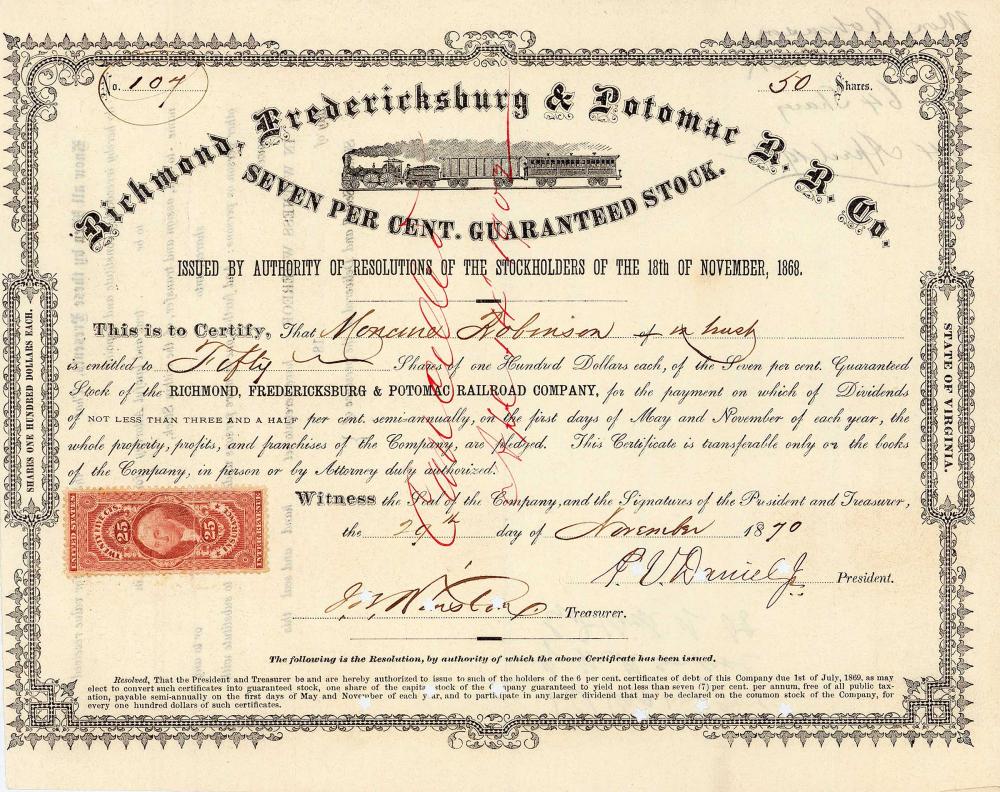 No. 104
50 Shares.
Richmond, Fredericksburg & Potomac R. R. Co.
SEVEN PER CENT. GUARANTEED STOCK.
ISSUED BY AUTHORITY OF RESOLUTIONS OF THE STOCKHOLDERS OF THE 18th OF NOVEMBER, 1868.
This is to Certify, That Moncure Robinson of in trust
is entitled to Fifty Shares of One Hundred Dollars each, of the Seven per cent. Guaranteed
Stock of the RICHMOND, FREDERICKSBURG & POTOMAC RAILROAD COMPANY, for the payment on which of Dividends
of NOT LESS THAN THREE AND A HALF per cent. semi-annually, on the first days of May and November of each year, the
whole property, profits, and franchises of the Company, are pledged. This Certificate is transferable only on the books
of the Company, in person or by Attorney duly authorized.
Witness the Seal of the Company, and the Signatures of the President and Treasurer,
the 29th day of November 1870
P. V. Daniel Jr President.
J B Winston Treasurer.
The following is the Resolution, by authority of which the above Certificate has been issued.
Resolved, That the President and Treasurer be and are hereby authorized to issue to such of the holders of the 6 per cent. certificates of debt of this Company due 1st of July, 1869, as may
elect to convert such certificates into guaranteed stock, one share of the capital stock of the Company guaranteed to yield not less than seven (7) per cent. per annum, free of all public tax-
ation, payable semi-annually on the first days of May and November of each year, and to participate in any larger dividend that may be declared on the common stock of the Company, for
every one hundred dollars of such certificates.
SHARES ONE HUNDRED DOLLARS EACH.
STATE OF VIRGINIA.
Cancelled
UNITED STATES
25
25
INTER. REVENUE